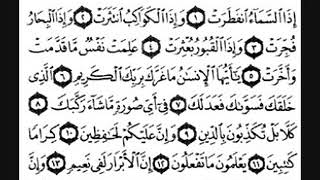 إِذَا السَّمَاءُ انفَطَرَتْ ١ وَإِذَا الْكَوَاكِبُ انتَثَرَتْ ٢ وَإِذَا الْبِحَارُ
فُجِّرَتْ ٣ وَإِذَا الْقُبُورُ بُعْثِرَتْ ٤ عَلِمَتْ نَفْسٌ مَّا قَدَّمَتْ
وَأَخَّرَتْ ٥ يَٰٓأَيُّهَا الْإِنسَٰنُ مَا غَرَّكَ بِرَبِّكَ الْكَرِيمِ ٦ الَّذِى
خَلَقَكَ فَسَوَّىٰكَ فَعَدَلَكَ ٧ فِىٓ أَىِّ صُورَةٍ مَّا شَآءَ رَكَّبَكَ ٨
كَلَّا بَلْ تُكَذِّبُونَ بِالدِّينِ ٩ وَإِنَّ عَلَيْكُمْ لَحَٰفِظِينَ ١٠ كِرَامًا
كَٰتِبِينَ ١١ يَعْلَمُونَ مَا تَفْعَلُونَ ١٢ إِنَّ الْأَبْرَارَ لَفِى نَعِيمٍ ١٣ وَإِنَّ